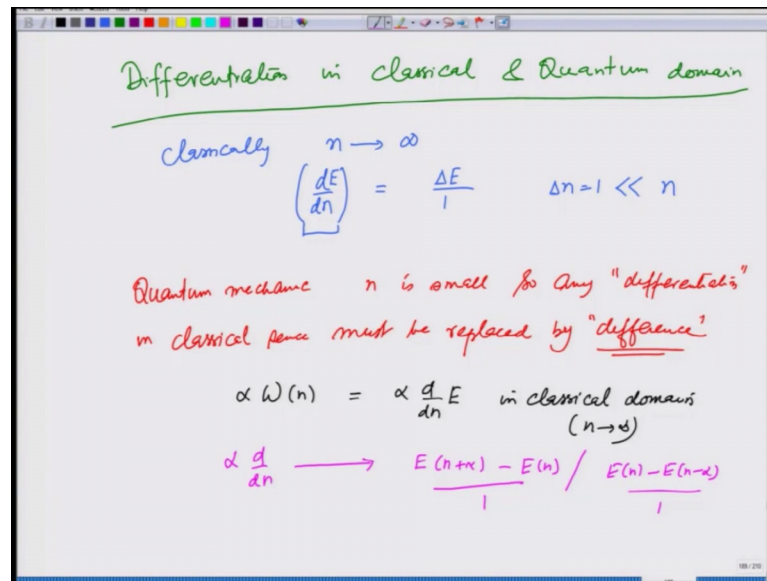 Differentiation in classical & Quantum domain
Classically n → ∞
(dE/dn) = ΔE/1 Δn=1 << n
Quantum mechanic n is small so any "differentiation"
in classical sense must be replaced by "difference"
α ω(n) = α d/dn E in classical domain
(n→∞)
α d/dn → E(n+α) - E(n)/1 / E(n) - E(n-α)/1